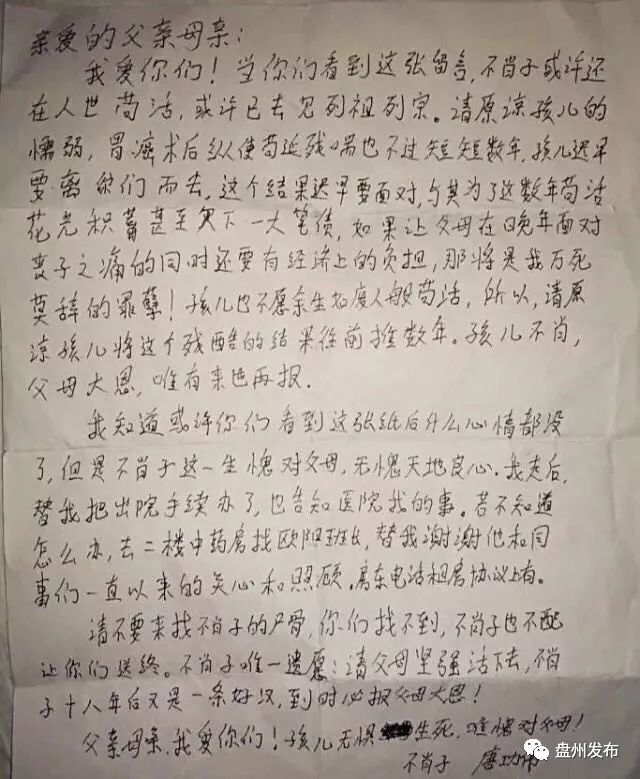 亲爱的父亲母亲：
我爱你们！当你们看到这张留言，不肖子或许还
在人世苟活，或许已去见列祖列宗。请原谅孩儿的
懦弱，胃癌术后纵使苟延残喘也不过短短数年，孩儿迟早
要离你们而去，这个结果迟早要面对，与其为了这数年苟活
花光积蓄甚至欠下一大笔债，如果让父母在晚年面对
丧子之痛的同时还要有经济上的负担，那将是我万死
莫辞的罪孽！孩儿也不愿余生如废人般苟活，所以，请原
谅孩儿将这个残酷的结果往前推数年。孩儿不肖，
父母大恩，唯有来世再报．
我知道或许你们看到这张纸后什么心情都没
了，但是不肖子这一生愧对父母，无愧天地良心．我走后，
替我把出院手续办了，也告知医院我的事。若不知道
怎么办，去二楼中药房找欧阳班长，替我谢谢他和同
事们一直以来的关心和照顾。房东电话租房协议上有。
请不要来找不肖子的尸骨，你们找不到，不肖子也不配
让你们送终。不肖子唯一遗愿：请父母坚强活下去，不肖
子十八年后又是一条好汉，到时必报父母大恩！
父亲母亲，我爱你们！孩儿无惧生死，唯愧对父母！
不肖子 唐功伟
盘州发布